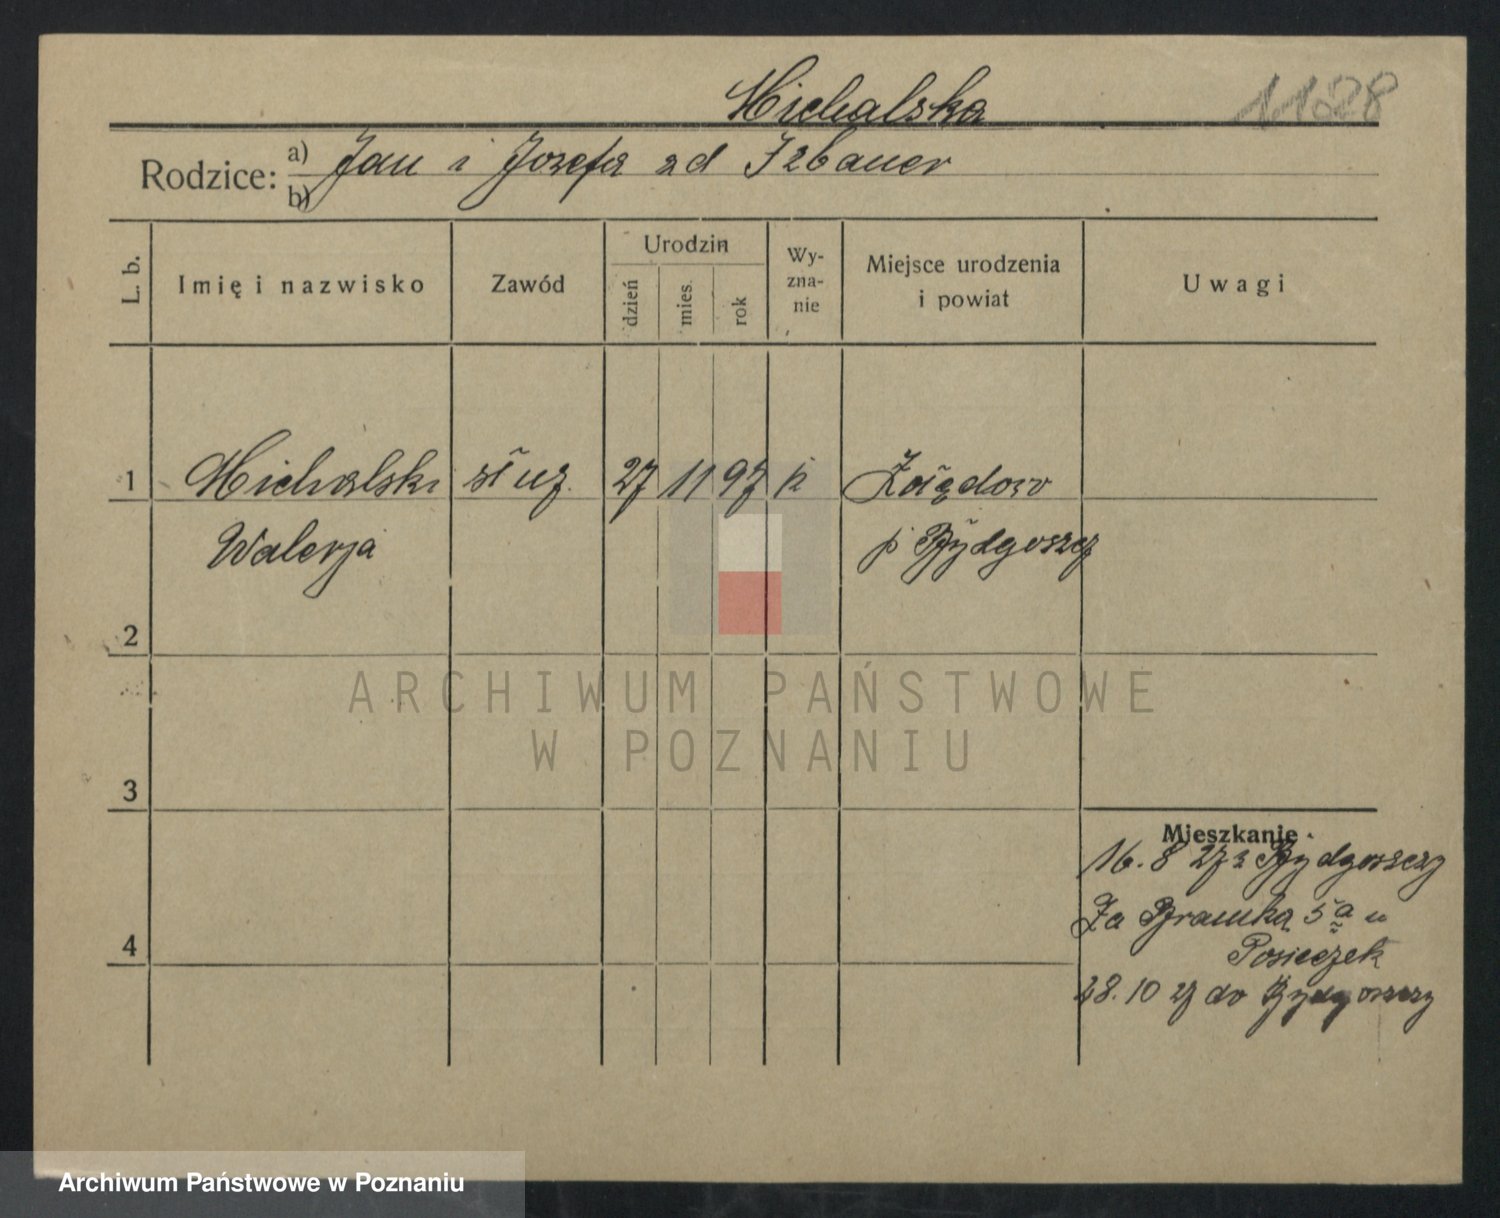 Michalska
1128
Rodzice: a) Jan i Jozefa zd Izbauer
b)
L. b.
Imię i nazwisko
Zawód
Urodzin
dzień
mies.
rok
Wy-
zna-
nie
Miejsce urodzenia
i powiat
Uwagi
1 Michalska służ. 27 11 97 k Żołędowo
Walerja p Bydgoszcz
2
ARCHIWUM PAŃSTWOWE
W POZNANIU
3
Mieszkanie
16. 8 27 z Bydgoszczy
Za Bramką 5a u
4
28. 10 27 do Bydgoszczy
Archiwum Państwowe w Poznaniu